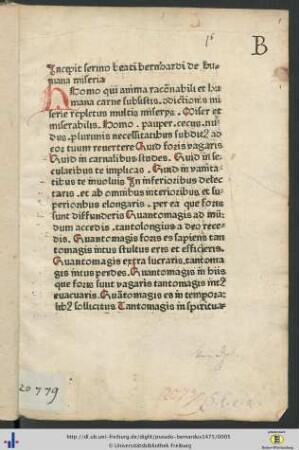 B
Incepit sermo beati bernhardi de hu-
mana miseria
O Homo qui anima racōnabili et hu
mana carne subsistis. odictionis mi
serie repletus multis miserys. Miser et
miserabilis. Homo. pauper. cecus. nu
dus. plurimis necessitatibus subdit9 ad
eor tuum revertere Quid foris vagaris
Quid in carnalibus studes. Quid in se
cularibus te implicas. Quid in vanita
tibus te inuoluis In inferioribus delec
taris. et ab omnibus interioribus et su
perionibus elongaris. per ea que foris
sunt diffunderis Quantomagis ad mū
dum accedis. tantolongius a deo rece
dis. Quantomagis foris es sapiens tan
tomagis intus stultus eris et efficieris.
Quantomagis extra lucraris. tantoma
gis intus perdes. Quantomagis in hiis
que foris sunt vagaris tantomagis int9
evacuaris. Quātomagis es in tempora
lib9 sollicitus Tantomagis in spiritua-
20779
http://dl.ub.uni-freiburg.de/diglit/pseudo-bernardus1475/0005
© Universitätsbibliothek Freiburg